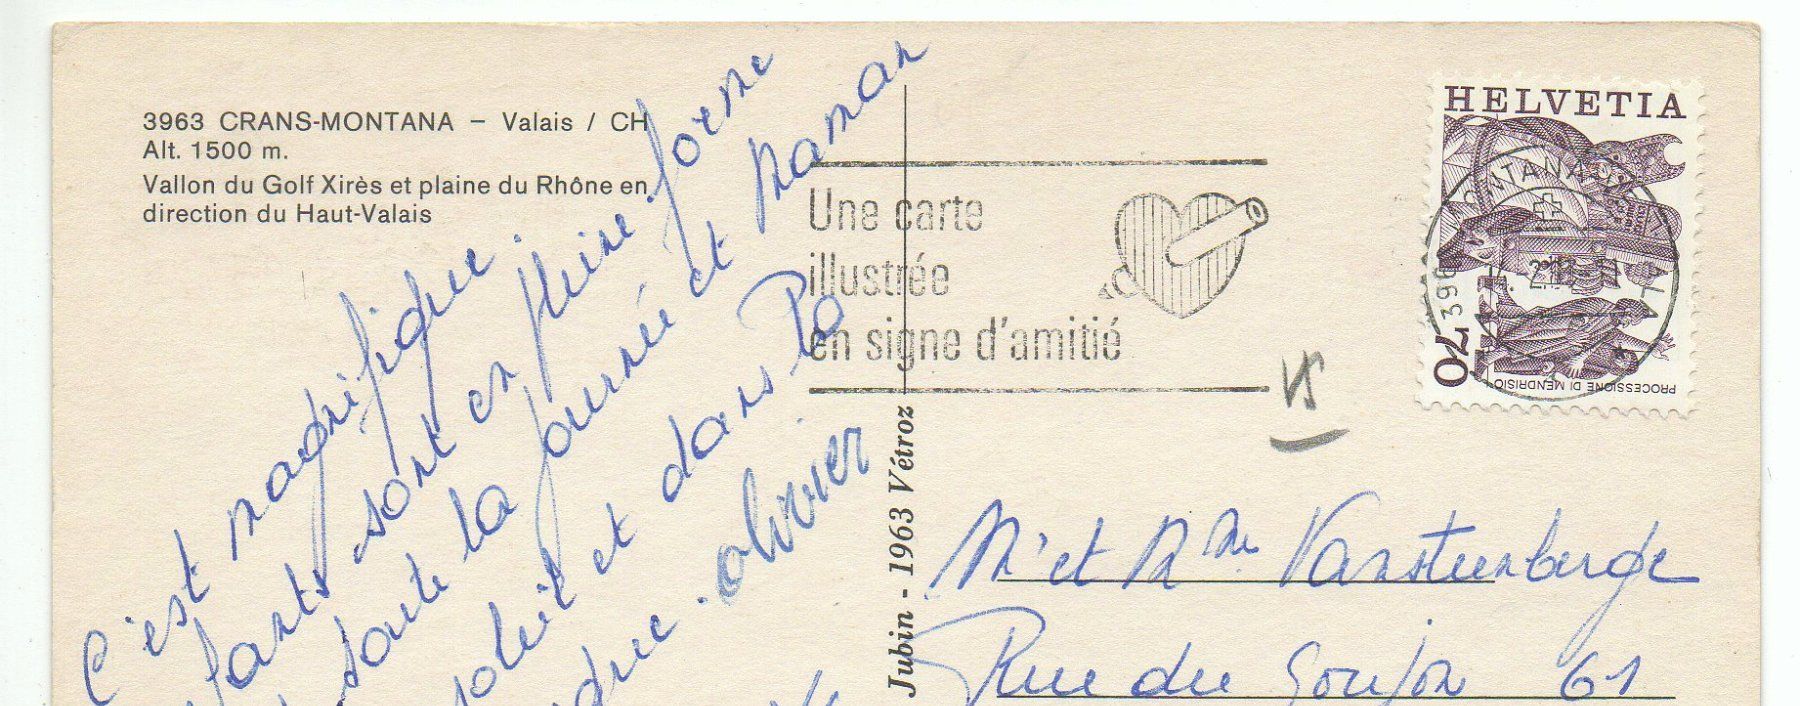 3963 CRANS-MONTANA – Valais / CH
Alt. 1500 m.
Vallon du Golf Xirès et plaine du Rhône en
direction du Haut-Valais
C'est magnifique.
sont en pleine forme
toute la journée et Maman
soleil et dans la
olivier
Une carte
illustrée
en signe d'amitié
HELVETIA
70
PROCESSIONE DI MENDRISIO
Jubin - 1963 Vétroz
Mr et Mme Vansteenberge
Rue du Goujon 61